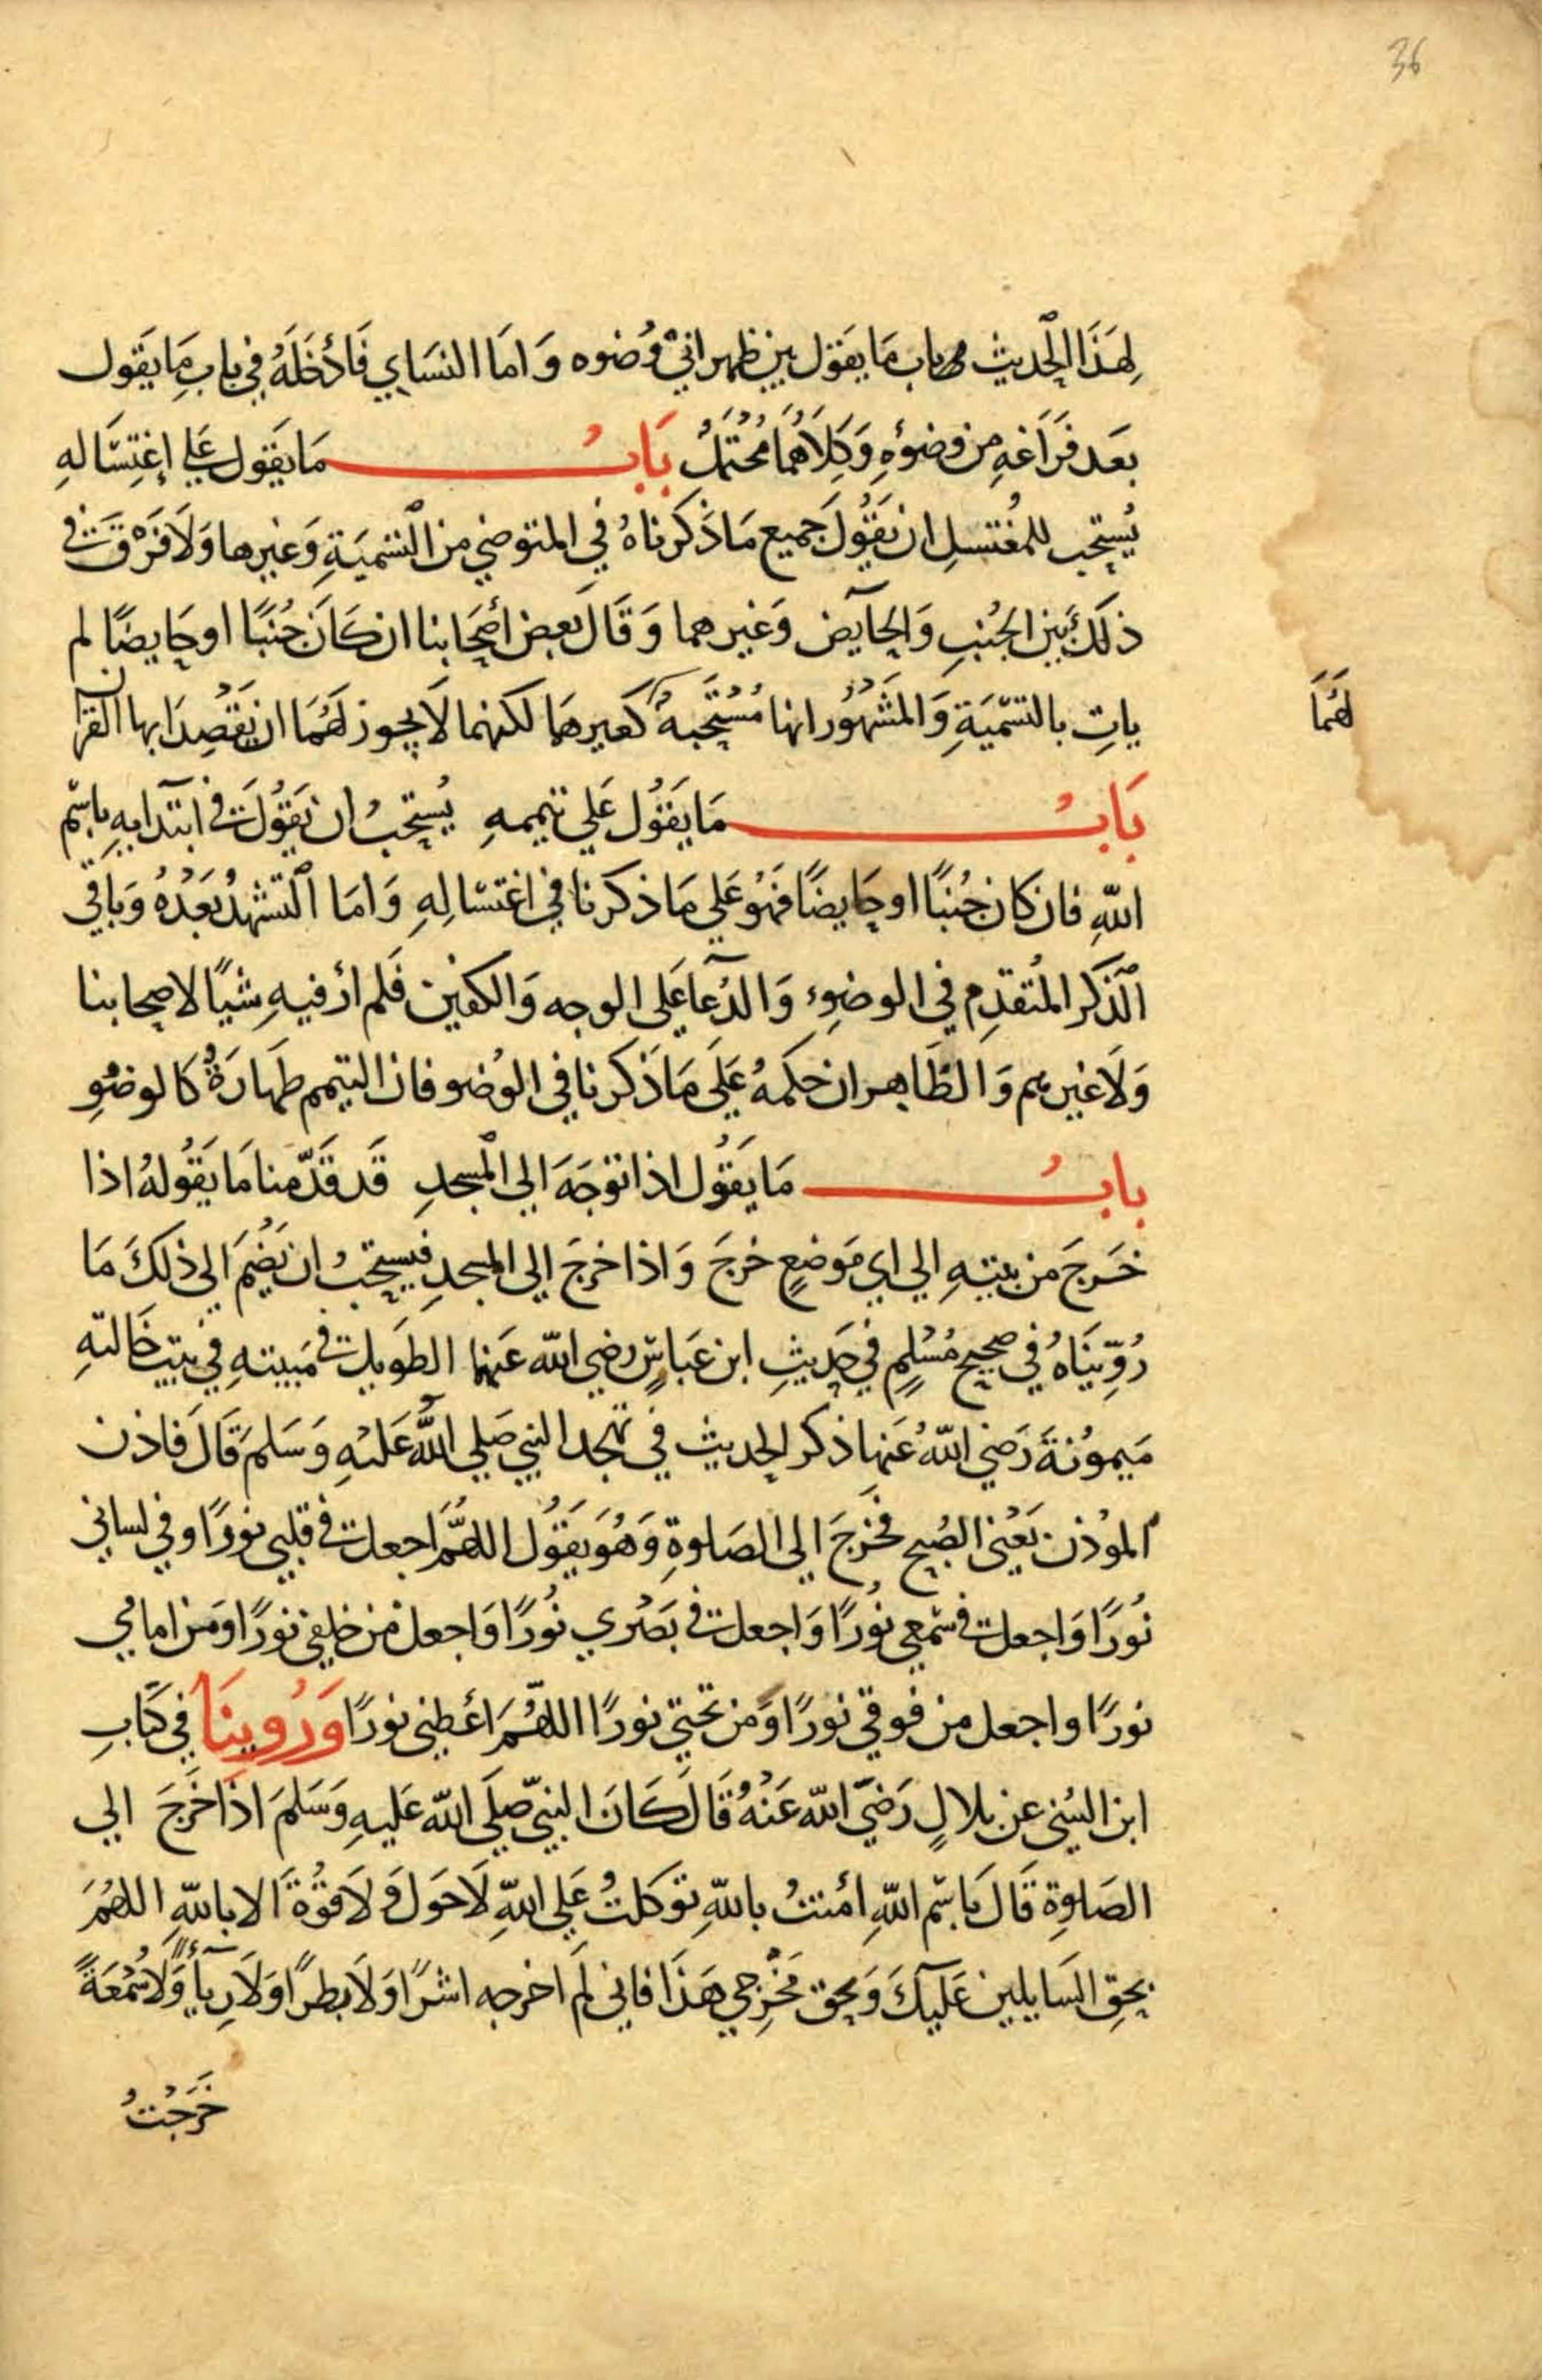 36
لِهَذَا الحَديث باب مَا يقول بين ظهراني وُضوه وَامَا النسَاي فَأدْخَلَهُ في بابِ مَا يَقول
بعَد فَرَاغهِ من وضوُءِهِ وَكِلَاهُمَا مُحْتَمَلُ بَابُ مَا يَقول علي إغتِسَالهِ
يُستحَب للمُغتسلِ ان يَقُولَ جَميع مَا ذَكرناهُ في المتوضي من التسْميَةِ وَغيرها وَلَا فَرْق في
ذلكَ بَين الجُنبِ وَالحَايض وَغيرهما وَقَالَ بَعض أصْحَابنا ان كَانَ جُنبًا او حَايضًا لم
ياتِ بالتسميَةِ وَالمَشهُور انها مُسْتحَبة لهُمَا كَغيرهمَا لكنهما لَا يجوز لهُمَا ان يَقصِدَا بها القرآن
بَابُ مَا يَقُول عَلي تيممهِ يُستحَبُ ان يَقُولَ في ابتدَايهِ باسْم
اللهِ فان كان جُنبًا او حَايضًا فهُو عَلي مَا ذكرنا في اغتسَالهِ وَامَا التشهدُ بَعْدَهُ وَبَاقي
الذكر المُتقدِم في الوضوِء وَالدُعَا عَلي الوجه وَالكفين فَلم أر فيهِ شيًا لاصحابنا
وَلَا غيرهم وَالظَاهر ان حكمهُ عَلَي مَا ذَكرنا في الوُضو فان التيمم طهارَةُ كالوضوِ
بابُ مَا يَقُول اذا توَجَهَ الي المسْجدِ قَد قَدّمنا مَا يَقُولهُ اذا
خَرَجَ من بيتهِ الي اي مَوضعٍ خرَجَ وَاذا خرجَ الي المسجدِ فيستحَبُ ان يَضُمَ الي ذلكَ مَا
رُوِّينَاهُ في صحيح مُسْلمٍ في حَديثِ ابن عَباسٍ رضي الله عَنهما الطَويل في مَبيتهِ في بيت خَالتهِ
مَيموُنةَ رَضي اللهُ عَنها ذكر الحديث في تهجد النبي صَلي اللهُ عَليْهِ وَسَلمَ قَالَ فَاذن
المؤذن يَعْني الصُبح فخَرجَ الي الصَلوةِ وَهُوَ يَقُول اللهُمَّ اجعل في قلبي نورًا وفي لساني
نُورًا وَاجعل في سَمْعي نُورًا وَاجعل في بَصَري نُورًا وَاجعل من خلفي نورًا وَمن امامي
نورًا واجعل من فوقي نورًا وَمن تحتي نورًا اللهُمَ أعْطني نورًا وَرُوينَا في كتابِ
ابن السُني عن بلالٍ رَضيَ الله عَنْهُ قَالَ كَانَ النبيّ صَلَي الله عَليهِ وَسَلمَ اذَا خَرَجَ الي
الصَلوةِ قَالَ بَاسْم اللهِ اُمنتُ باللهِ توكلتُ عَلي اللهِ لَا حَول وَ لَا قوُةَ الا باللهِ اللهُمَ
بحقِ السَايلين عَليكَ وَبحق مَخْرَجي هَذَا فاني لَم اخرجه اشرًا وَلَا بطرًا وَلَا رِيآءً وَلَا سُمْعَةً
خَرَجْتُ
لهُمَا